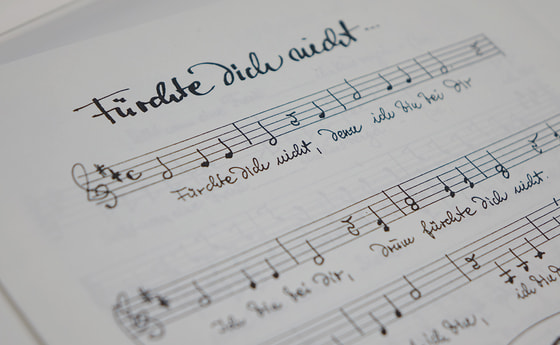 Fürchte dich nicht...
Fürchte dich nicht, denn ich bin bei dir
Ich bin bei dir, drum fürchte dich nicht.
ich bin,